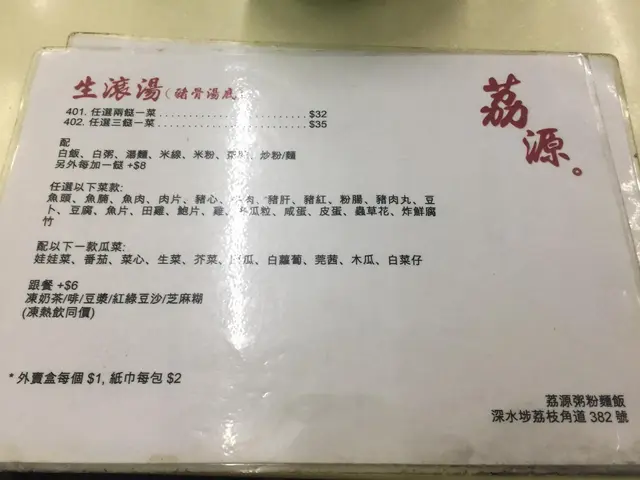 生滾湯(豬骨湯底
401. 任選兩餸一菜 $32
402. 任選三餸一菜 $35
荔源。
配
白飯、白粥、瀨麵、米線、米粉、粉、炒粉/麵
另外每加一餸 +$8
任選以下菜款:
魚頭、魚腩、魚肉、肉片、豬心、肉、豬肝、豬紅、粉腸、豬肉丸、豆
卜、豆腐、魚片、田雞、鮑片、雞、瓜粒、咸蛋、皮蛋、蟲草花、炸鮮腐
竹
配以下一款瓜菜:
娃娃菜、番茄、菜心、生菜、芥菜、瓜、白蘿蔔、莞茜、木瓜、白菜仔
跟餐 +$6
凍奶茶/啡/豆漿/紅綠豆沙/芝麻糊
(凍熱飲同價)
* 外賣盒每個 $1, 紙巾每包 $2
荔源粥粉麵飯
深水埗荔枝角道 382 號